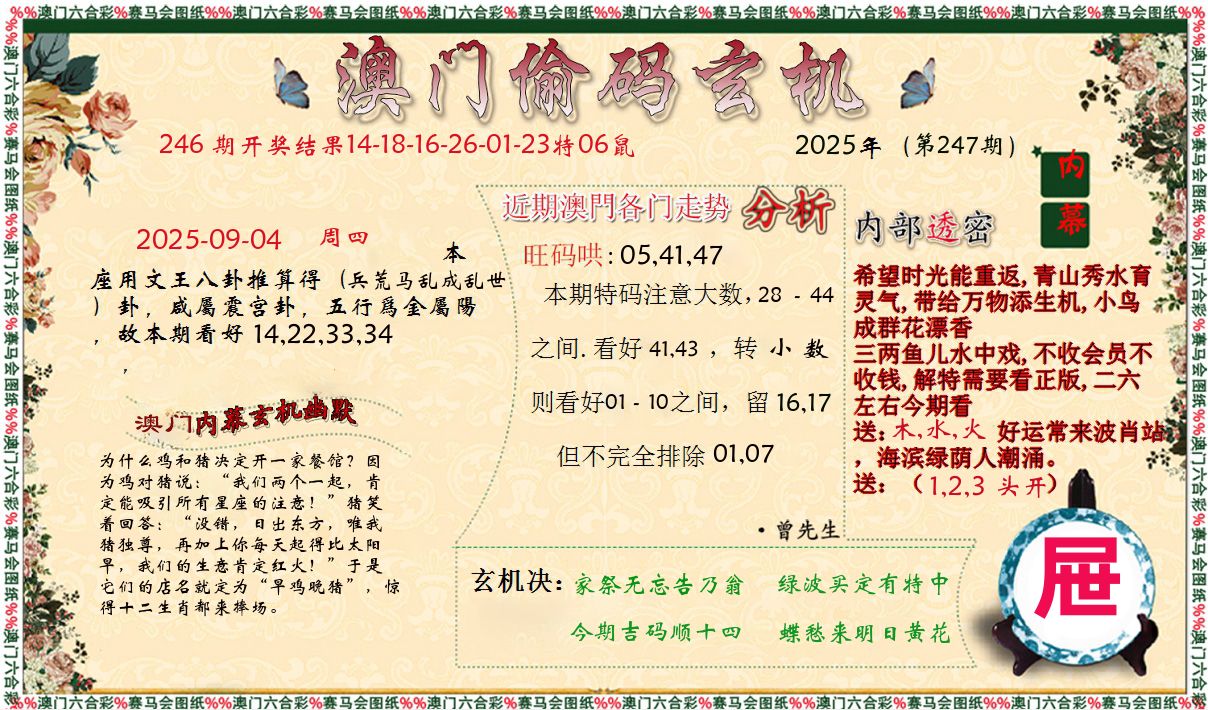 %%澳门六合彩%赛马会图纸%%澳门六合彩%赛马会图纸%%澳门六合彩%赛马会图纸%%澳门六合彩%赛马会图纸%%澳门六合彩%赛马会图纸%%澳门六合彩%赛马会图纸%%
澳门偷码玄机
246 期开奖结果14-18-16-26-01-23特06鼠
2025年（第247期）
内
幕
2025-09-04 周四
本
座用文王八卦推算得（兵荒马乱成乱世
）卦，咸屬震宫卦，五行爲金屬陽
，故本期看好 14,22,33,34
，
澳门内幕玄机幽默
为什么鸡和猪决定开一家餐馆？因
为鸡对猪说：“我们两个一起，肯
定能吸引所有星座的注意！”猪笑
着回答：“没错，日出东方，唯我
猪独尊，再加上你每天起得比太阳
早，我们的生意肯定红火！”于是
它们的店名就定为“早鸡晚猪”，惊
得十二生肖都来捧场。
近期澳門各门走势 分析
旺码哄: 05,41,47
本期特码注意大数，28 - 44
之间. 看好 41,43 ，转 小 数
则看好01 - 10之间，留 16,17
但不完全排除 01,07
·曾先生
内部透密
希望时光能重返, 青山秀水育
灵气, 带给万物添生机, 小鸟
成群花漂香
三两鱼儿水中戏, 不收会员不
收钱, 解特需要看正版, 二六
左右今期看
送: 木,水,火 好运常来波肖站
，海滨绿荫人潮涌。
送: （1,2,3 头开）
玄机决: 家祭无忘告乃翁 绿波买定有特中
今期吉码顺十四 蝶愁来明日黄花
屉
%%澳门六合彩%赛马会图纸%%澳门六合彩%赛马会图纸%%澳门六合彩%赛马会图纸%%澳门六合彩%赛马会图纸%%澳门六合彩%赛马会图纸%%澳门六合彩%赛马会图纸%%